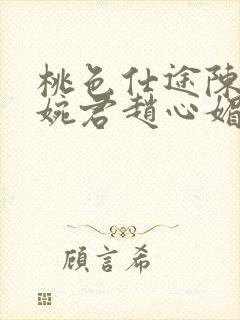 桃色仕途陳
婉君趙心媚
顧言希